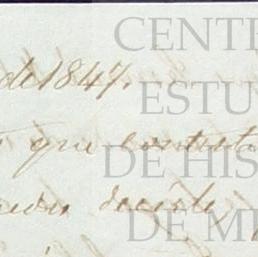 de 1847.
que contesto
decirle
CENTE
ESTU
DE HIS
DE M